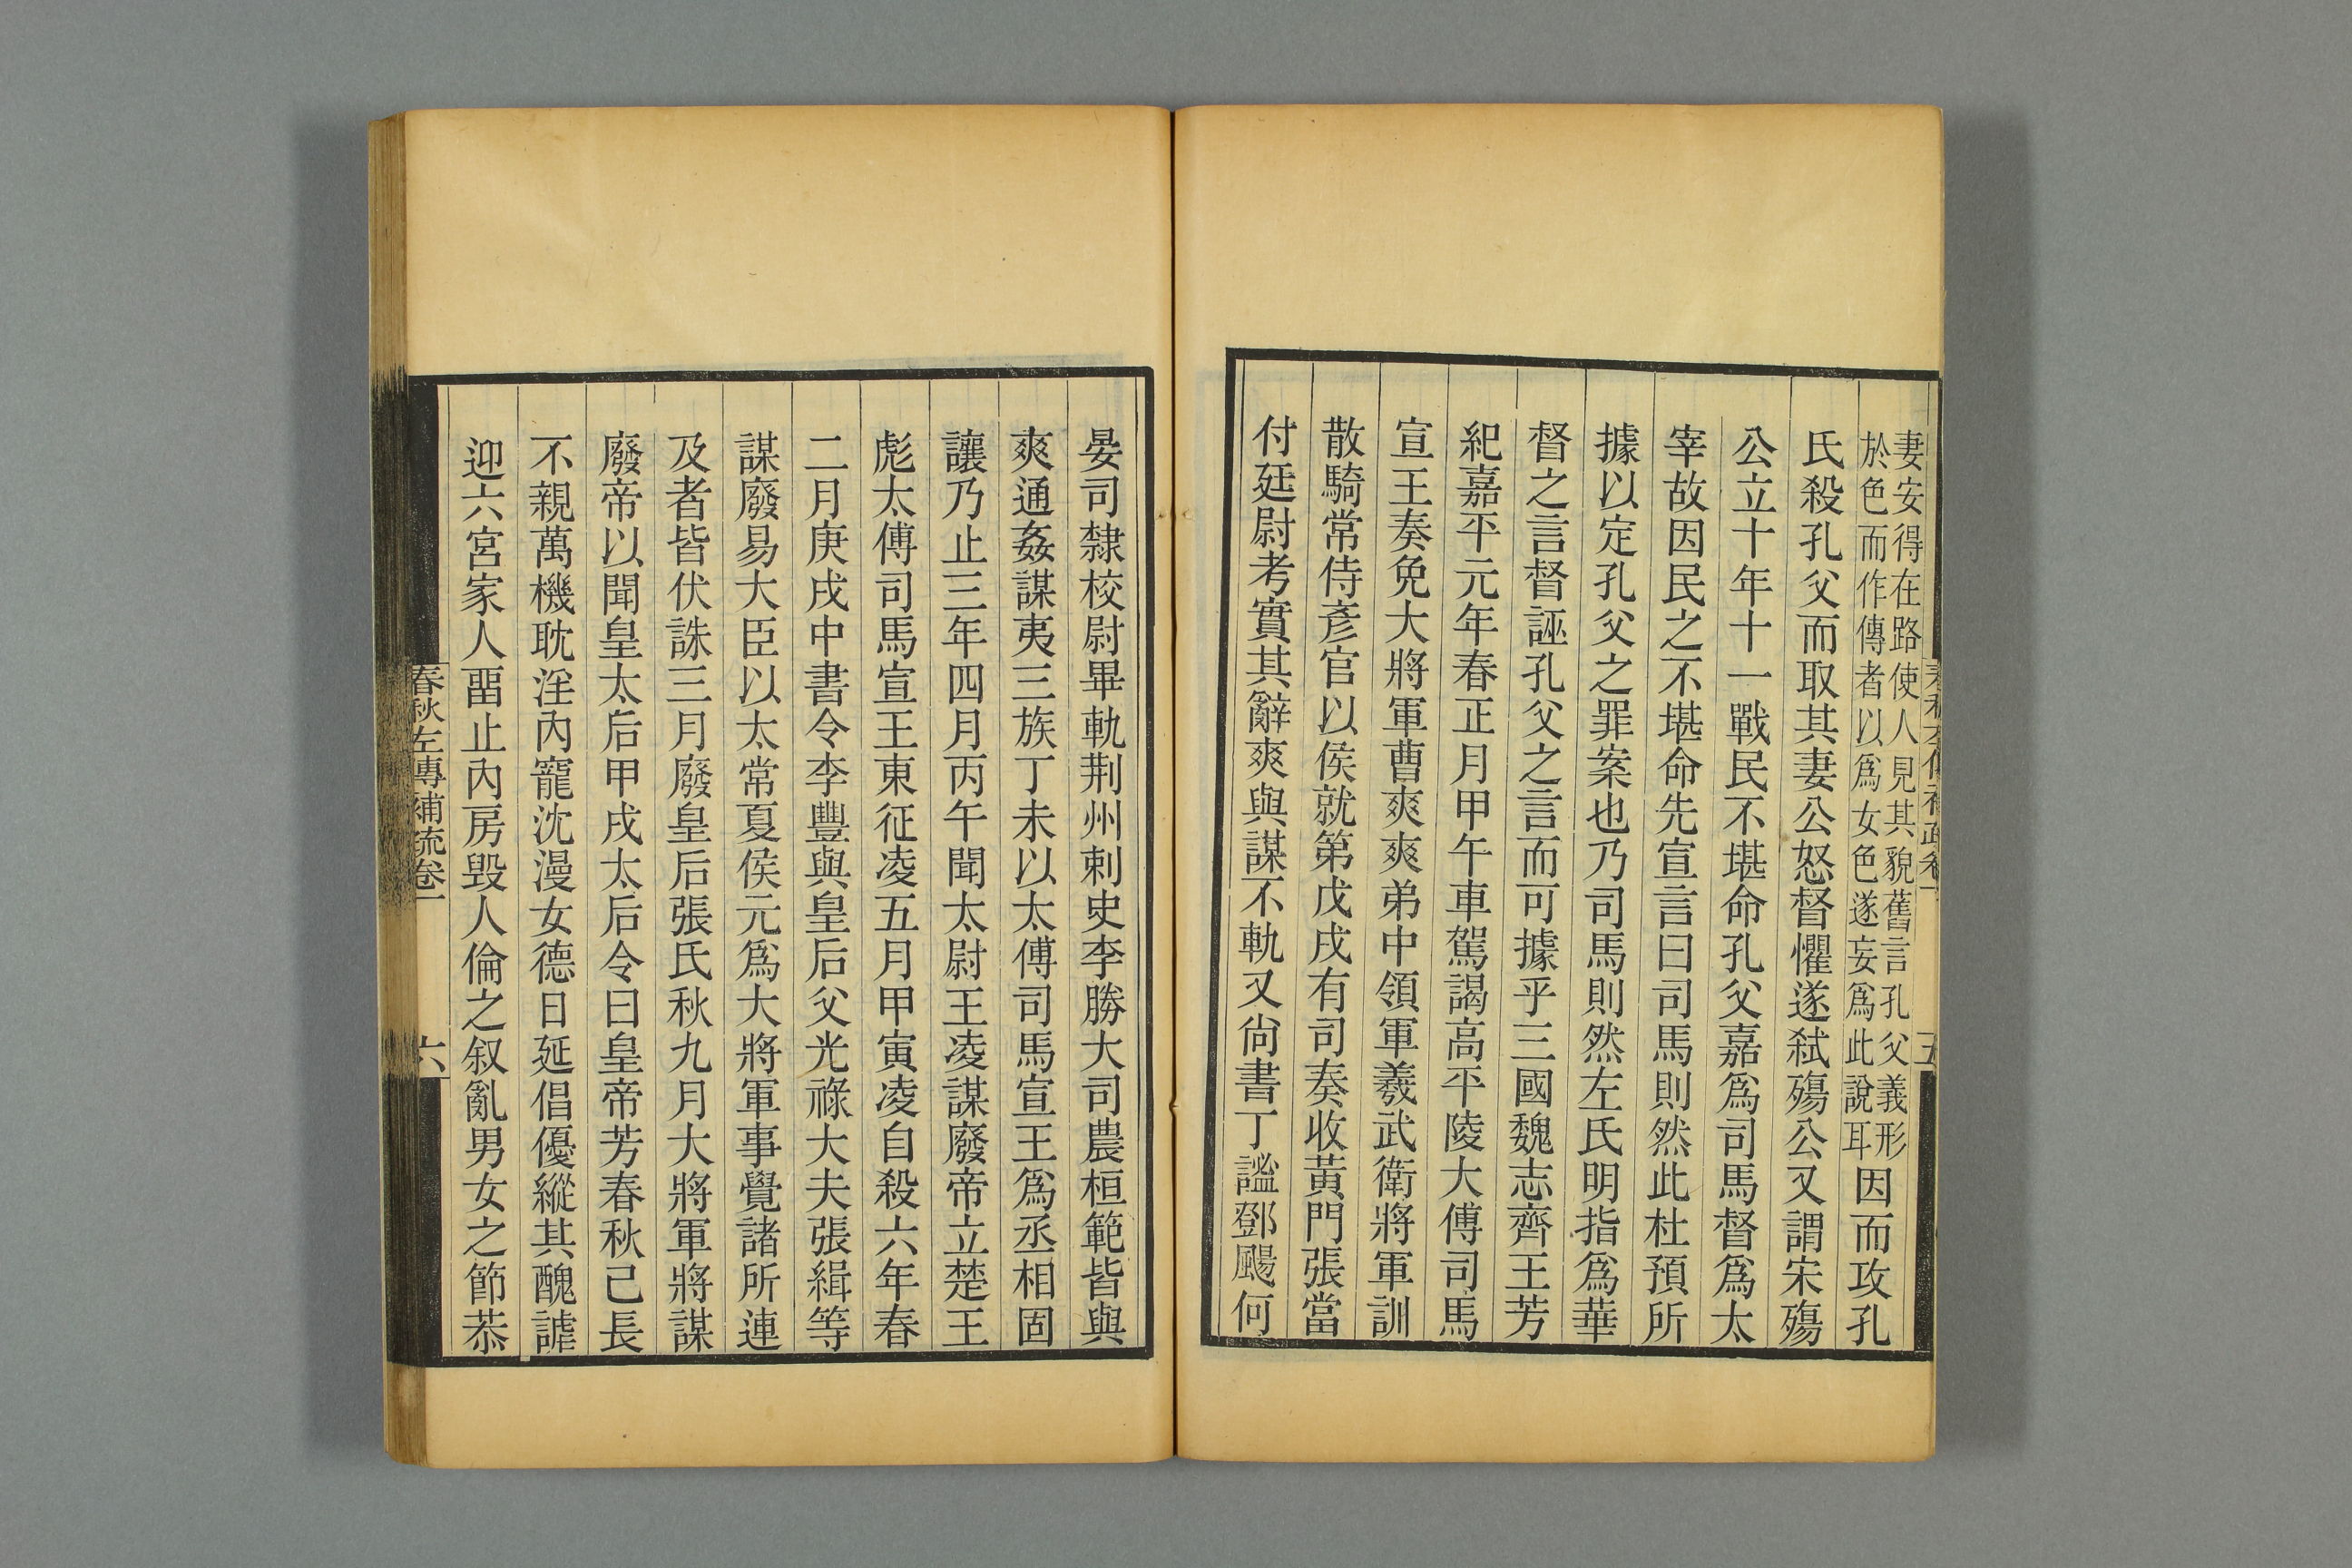 妻安得在路使人見其貌舊言孔父義形
於色而作傳者以爲女色遂妄爲此說耳
因而攻孔
氏殺孔父而取其妻公怒督懼遂弑殤公又謂宋殤
公立十年十一戰民不堪命孔父嘉爲司馬督爲太
宰故因民之不堪命先宣言曰司馬則然此杜預所
據以定孔父之罪案也乃司馬則然左氏明指爲華
督之言督誣孔父之言而可據乎三國魏志齊王芳
紀嘉平元年春正月甲午車駕謁高平陵大傅司馬
宣王奏免大將軍曹爽爽弟中領軍羲武衛將軍訓
散騎常侍彥官以侯就第戊戌有司奏收黃門張當
付廷尉考實其辭爽與謀不軌又尙書丁謐鄧颺何
春秋左傳補疏卷一
五
晏司隸校尉畢軌荆州刺史李勝大司農桓範皆與
爽通姦謀夷三族丁未以太傅司馬宣王爲丞相固
讓乃止三年四月丙午聞太尉王凌謀廢帝立楚王
彪太傅司馬宣王東征凌五月甲寅凌自殺六年春
二月庚戌中書令李豐與皇后父光祿大夫張緝等
謀廢易大臣以太常夏侯元爲大將軍事覺諸所連
及者皆伏誅三月廢皇后張氏秋九月大將軍將謀
廢帝以聞皇太后甲戌太后令曰皇帝芳春秋己長
不親萬機耽淫內寵沈漫女德日延倡優縱其醜謔
迎六宮家人畱止內房毀人倫之叙亂男女之節恭
春秋左傳補疏卷一
六